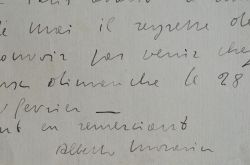 moi il regrette de
pouvoir pas venir chez
dimanche le 28
février —
en remerciant
Alberto Moravia